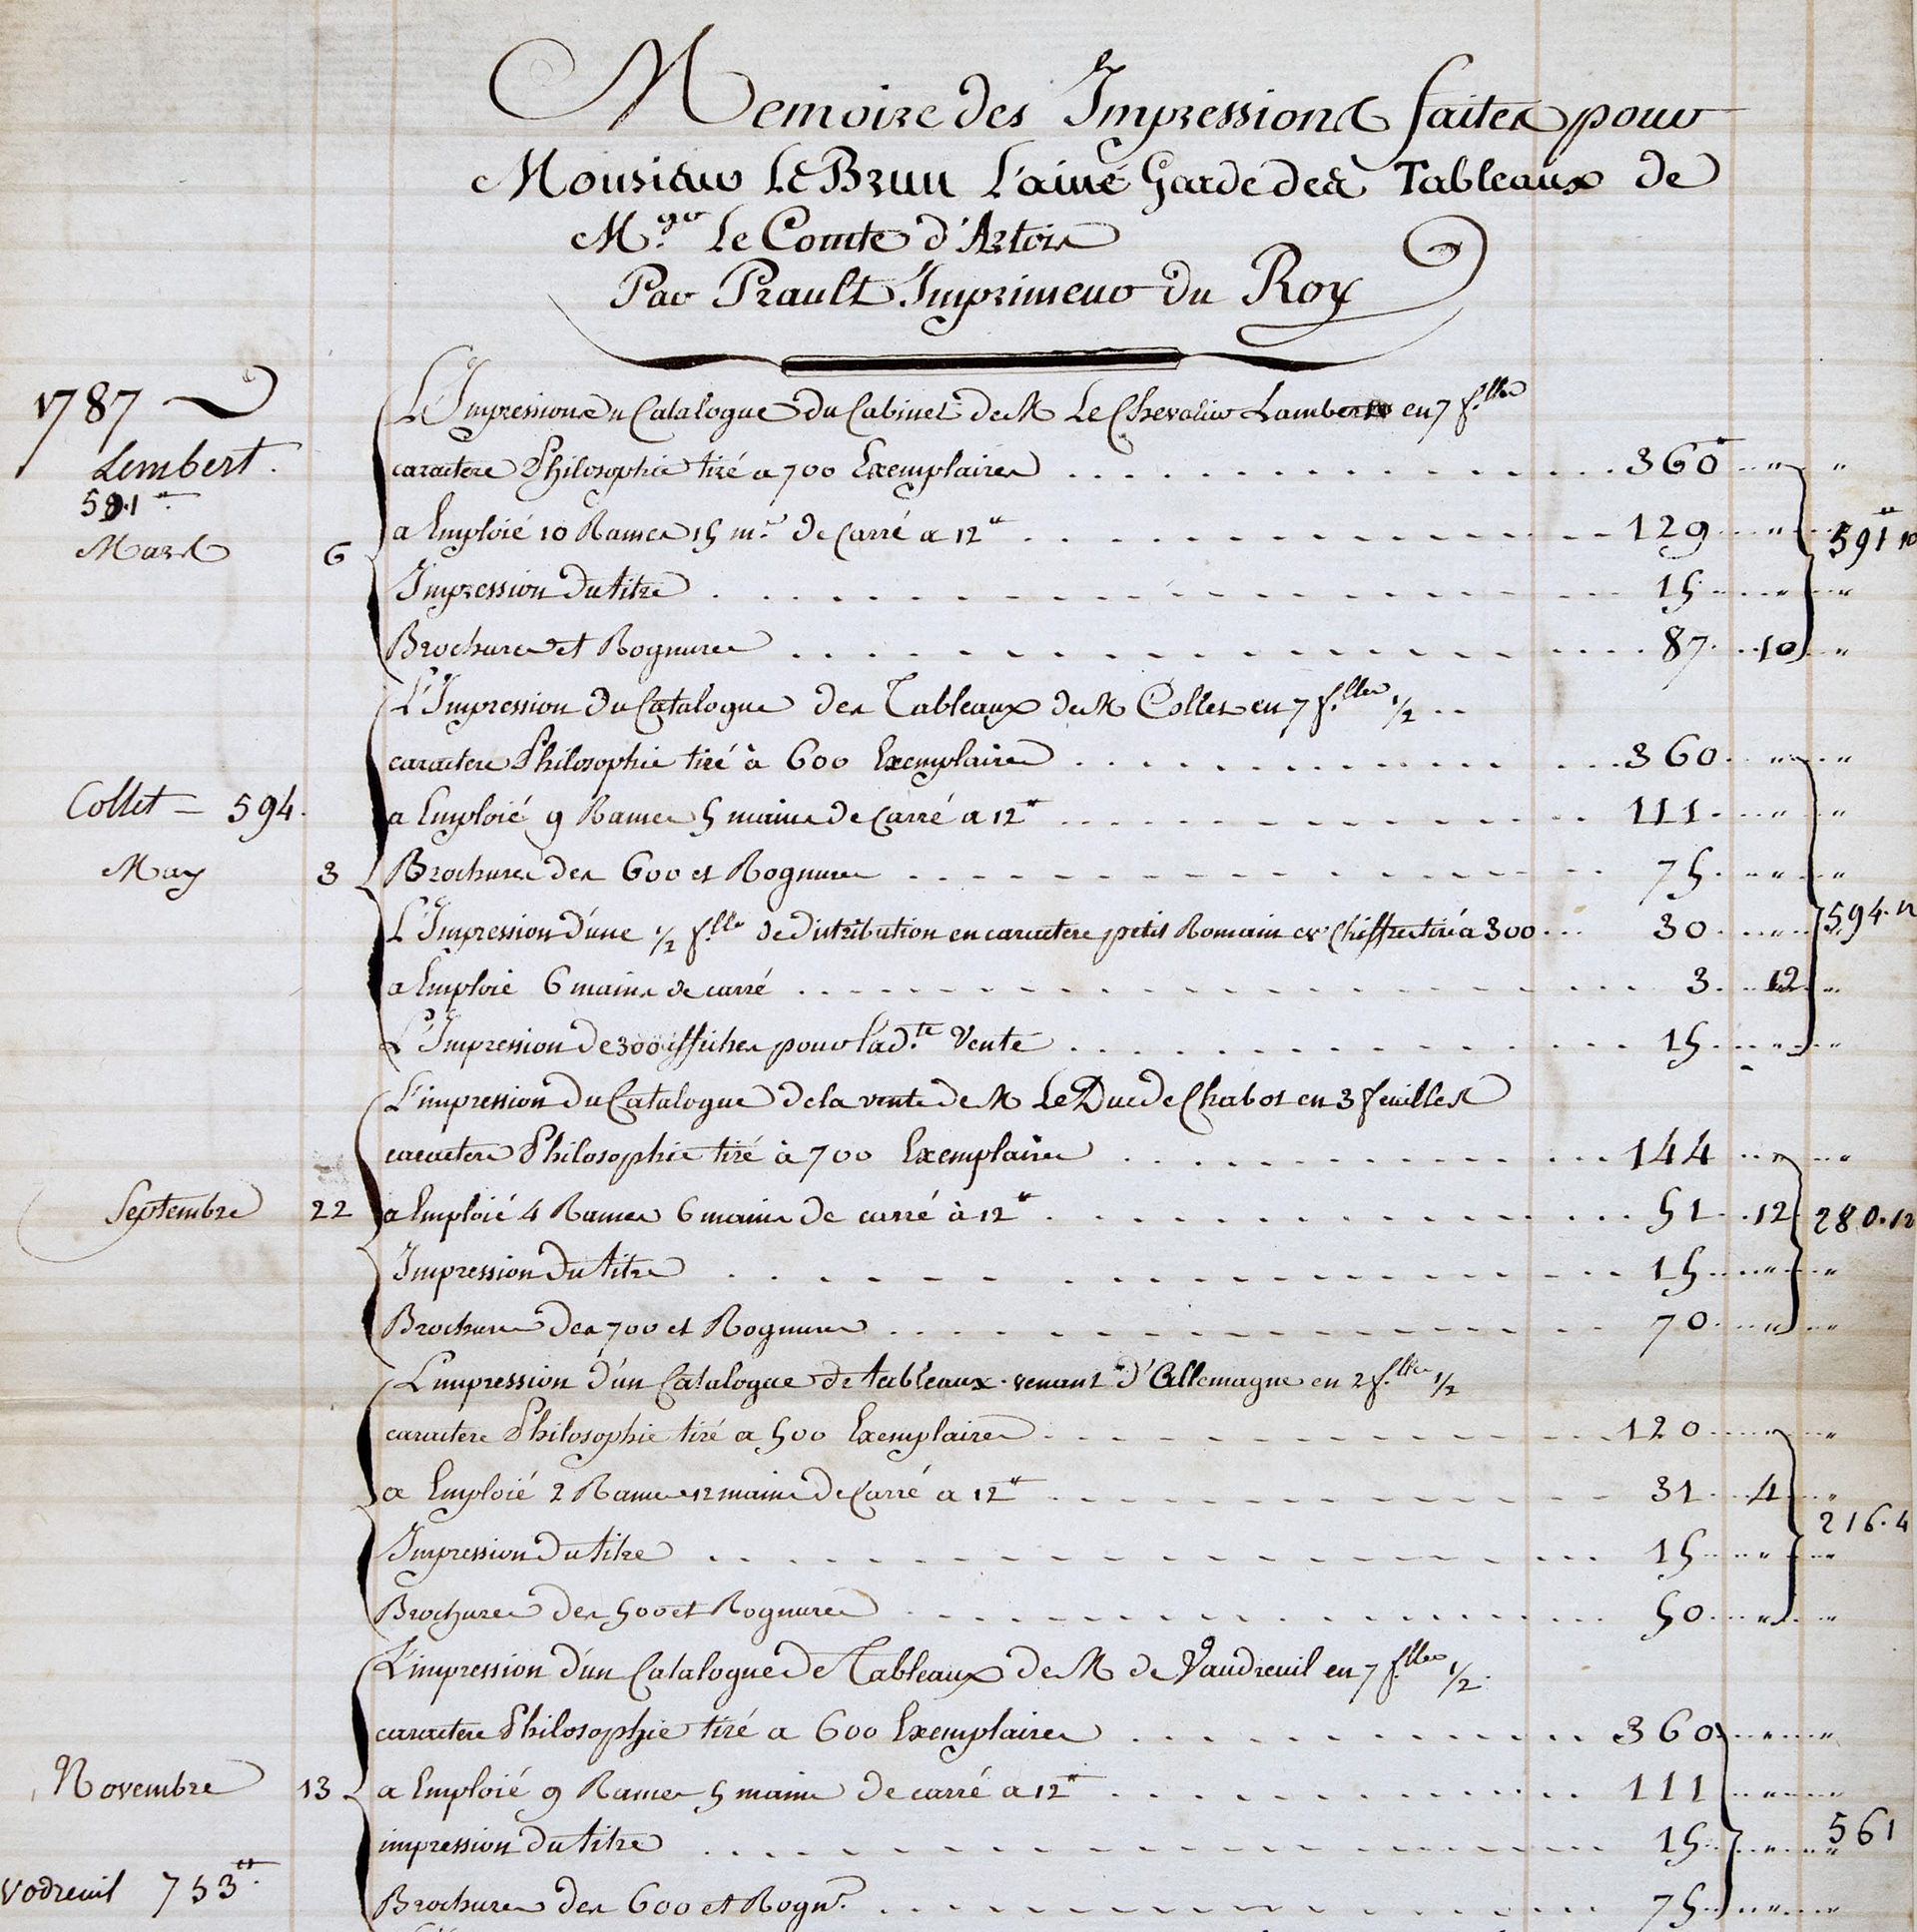 Memoire des Impressions faites pour
Monsieur Le Brun L'ainé Garde des Tableaux de
M.gr Le Comte d'Artois
Par Prault Imprimeur du Roy
1787
L'Impression du Catalogue du Cabinet de M Le Chevalier Lambert en 7 f.lles
Lembert.
caractere Philosophie tiré a 700 Exemplaires 360 " "
591 tt
a Emploié 10 Rames 15 m.s de Carré a 12 tt 129 " "
591 tt 10
Mars 6
Impression du titre 15 " "
Brochures et Rognures 87 10 "
L'Impression du Catalogue des Tableaux de M Collet en 7 f.lles 1/2
caractere Philosophie tiré à 600 Exemplaires 360 " "
Collet = 594.
a Emploié 9 Rames 5 mains de Carré a 12 tt 111 " "
May 3
Brochures des 600 et Rognures 75 " "
L'Impression d'une 1/2 f.lle de distribution en caractere petit Romain et Chiffres tiré a 300 30 "
594.12
a Emploié 6 mains de carré 3 12 "
L'Impression de 300 affiches pour lad.te Vente 15 " "
L'impression du Catalogue de la vente de M Le Duc de Chabot en 3 feuilles
caractere Philosophie tiré à 700 Exemplaires 144 " "
Septembre 22
a Emploié 4 Rames 6 mains de carré à 12 tt 51 12
280.12
Impression du titre 15 " "
Brochures des 700 et Rognures 70 " "
L'impression d'un Catalogue de tableaux venant d'Allemagne en 2 f.lles 1/2
caractere Philosophie tiré a 500 Exemplaires 120 " "
a Emploié 2 Rames 12 mains de Carré a 12 tt 31 4 "
216.4
Impression du titre 15 " "
Brochures des 500 et Rognures 50 " "
L'impression d'un Catalogue de Tableaux de M de Vaudreuil en 7 f.lles 1/2
caractere Philosophie tiré a 600 Exemplaires 360 " "
Novembre 13
a Emploié 9 Rames 5 mains de carré a 12 tt 111 " "
impression du titre 15 " "
561
Vodreuil 753 tt
Brochures des 600 et Rogn.s 75 " "